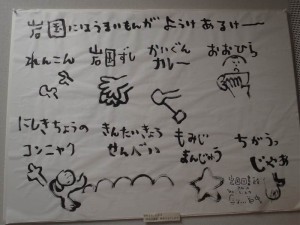 岩国にはうまいもんが ようけ あるけー
れんこん 岩国ずし かいぐん おおひら
カレー
にしきちょうの きんたいきょう もみじ ちがうっ
コンニャク せんべい まんじゅう じゃあ